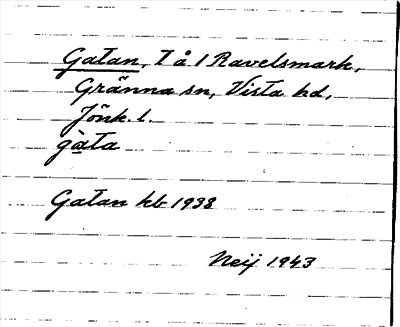 Gatan, T å 1 Ravelsmark,
Gränna sn, Vista hd,
Jönk. l.
gàta
Gatan kb 1938
Neij 1943